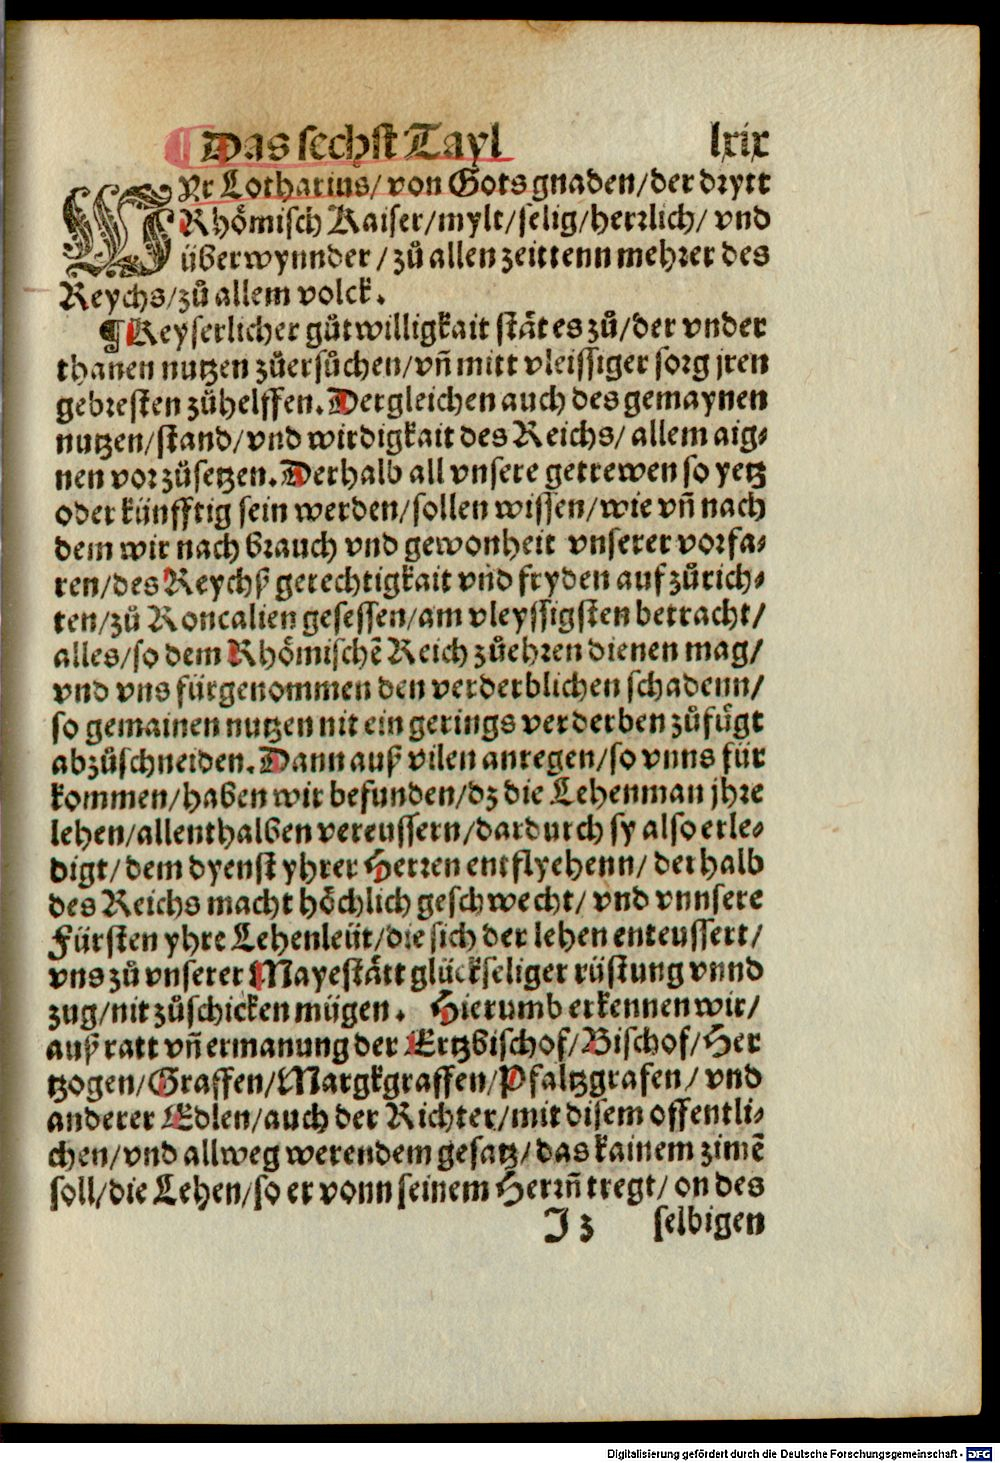 ¶ Das sechst Tayl lxix
WYr Lotharius/ von Gots gnaden/der drytt
Rhömisch Kaiser/mylt/selig/herrlich/ vnd
überwynnder/ zů allen zeittenn mehrer des
Reychs/zů allem volck.
¶Keyserlicher gůtwilligkait stät es zů/der vnder
thanen nutzen zůersůchen/vñ mitt vleissiger sorg jren
gebresten zůhelffen. Dergleichen auch des gemaynen
nutzen/stand/vnd wirdigkait des Reichs/ allem aig⸗
nen vorzůsetzen. Derhalb all vnsere getrewen so yetz
oder künfftig sein werden/sollen wissen/wie vñ nach
dem wir nach brauch vnd gewonheit vnserer vorfa⸗
ren/des Reychß gerechtigkait vnd fryden aufzůrich⸗
ten/zů Roncalien gesessen/am vleyssigsten betracht/
alles/so dem Rhömischē Reich zůehren dienen mag/
vnd vns fürgenommen den verderblichen schadenn/
so gemainen nutzen nit ein gerings verderben zůfůgt
abzůschneiden. Dann auß vilen anregen/so vnns für
kommen/haben wir befunden/dz die Lehenman jhre
lehen/allenthalben vereussern/dardurch sy also erle⸗
digt/dem dyenst yhrer Herren entflyehenn/ derhalb
des Reichs macht höchlich geschwecht/ vnd vnnsere
Fürsten yhre Lehenleüt/die sich der lehen enteussert/
vns zů vnserer Mayestätt glückseliger rüstung vnnd
zug/nit zůschicken mügen. Hierumb erkennen wir/
auß ratt vñ ermanung der Ertzbischof/Bischof/Her
tzogen/Graffen/Margkgraffen/Pfaltzgrafen/ vnd
anderer Edlen/auch der Richter/mit disem offentli⸗
chen/vnd allweg werendem gesatz/das kainem zimē
soll/die Lehen/so er vonn seinem Herrñ tregt/ on des
J 3 selbigen
Digitalisierung gefördert durch die Deutsche Forschungsgemeinschaft - DFG